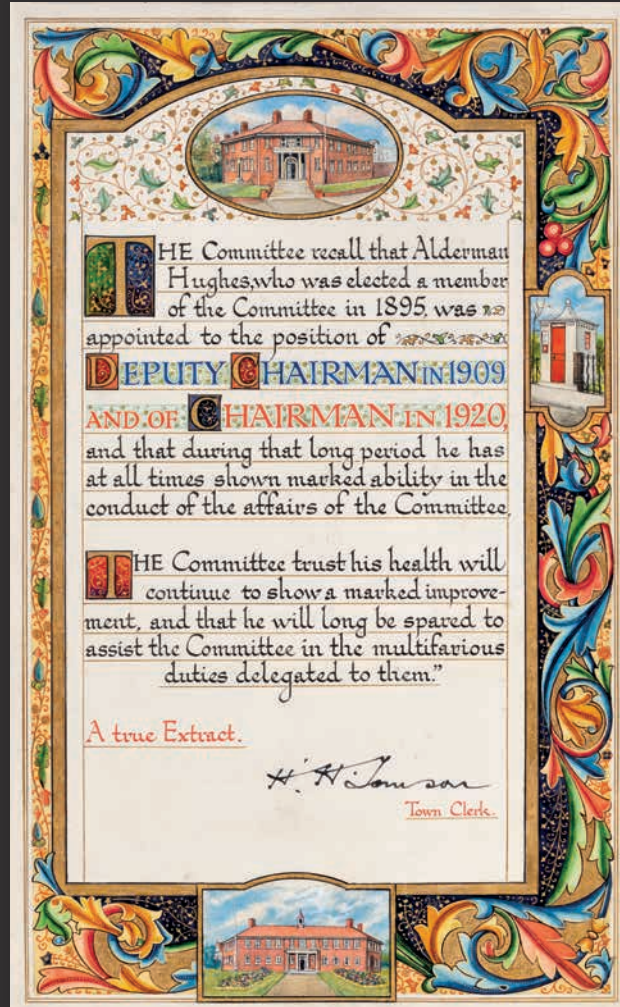 THE Committee recall that Alderman
Hughes, who was elected a member
of the Committee in 1895, was
appointed to the position of
DEPUTY CHAIRMAN IN 1909
AND OF CHAIRMAN IN 1920,
and that during that long period he has
at all times shown marked ability in the
conduct of the affairs of the Committee.
THE Committee trust his health will
continue to show a marked improve-
ment, and that he will long be spared to
assist the Committee in the multifarious
duties delegated to them."
A true Extract.
H. H. Tomson
Town Clerk.